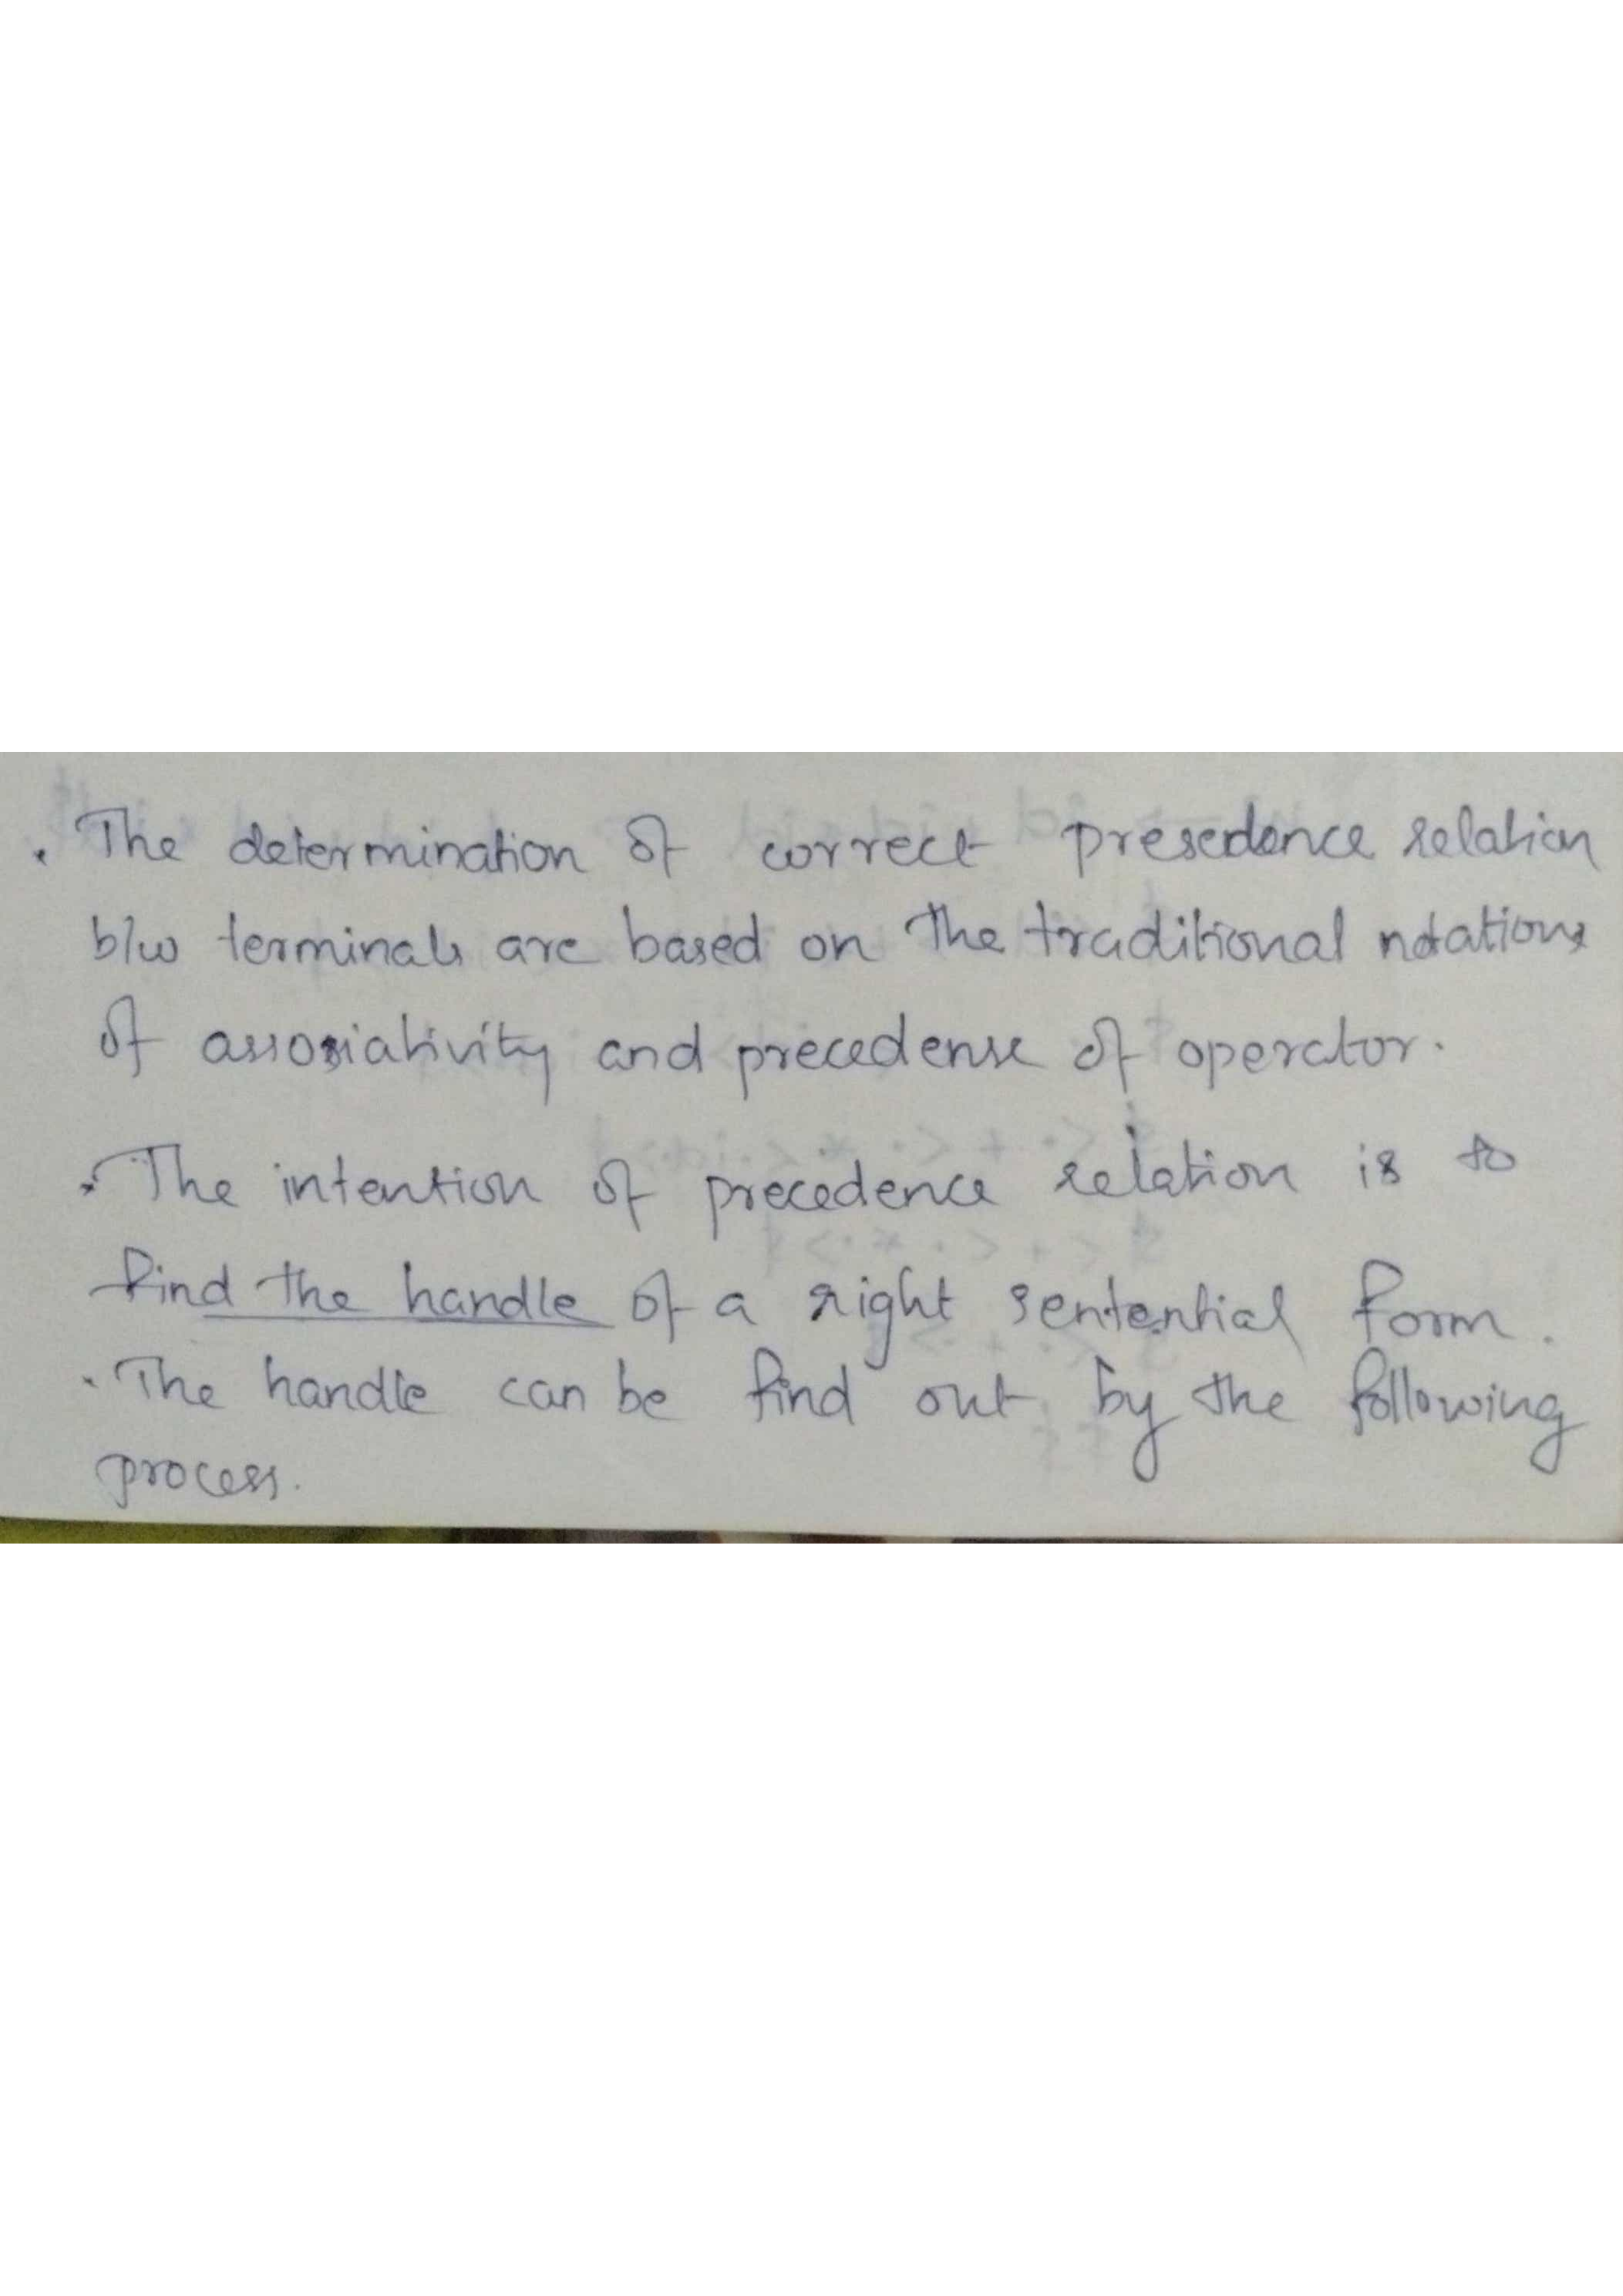 . The determination of correct presedence relation
b/w terminals are based on the traditional notations
of assosiativity and precedense of operator.
. The intention of precedence relation is to
find the handle of a right sentential form.
. The handle can be find out by the following
process.